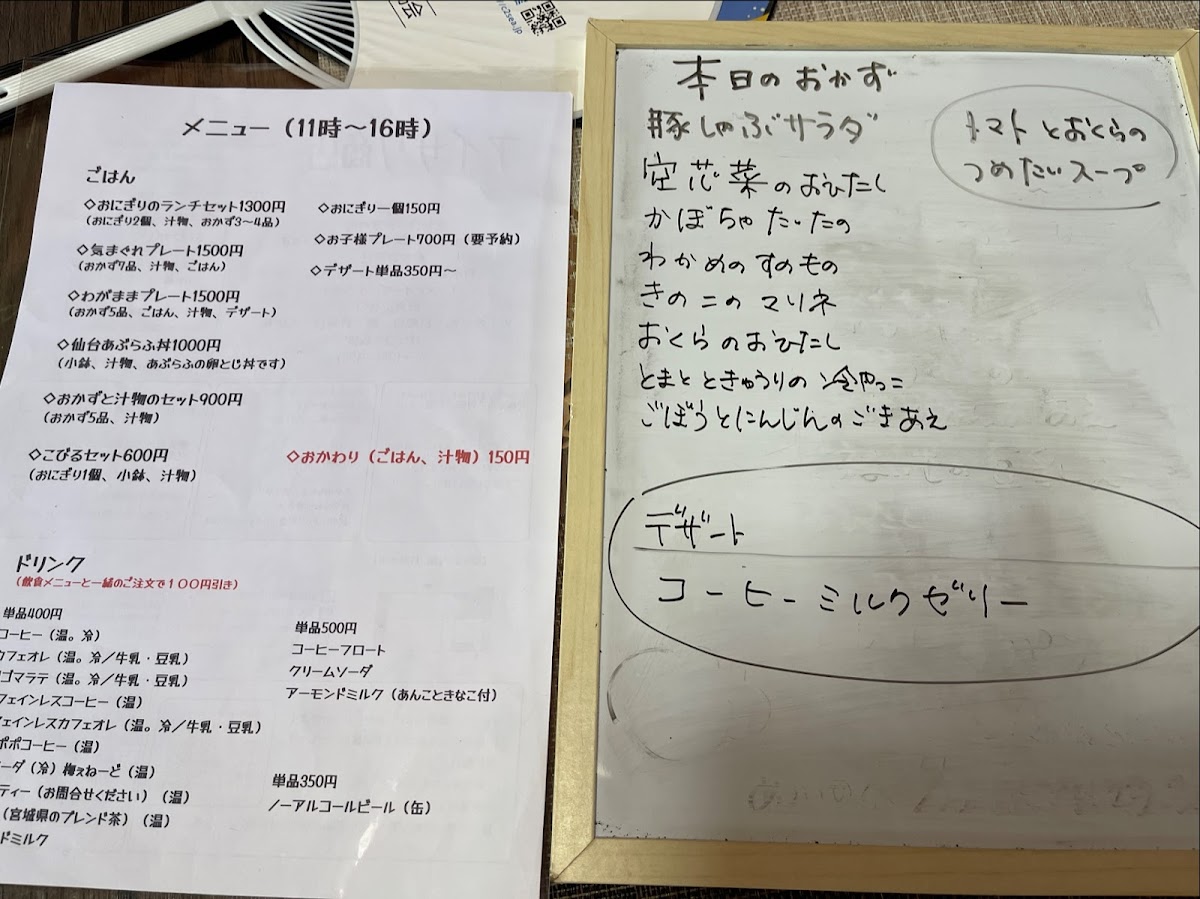 メニュー（11時～16時）
ごはん
◇おにぎりのランチセット1300円
（おにぎり2個、汁物、おかず3～4品）
◇気まぐれプレート1500円
（おかず7品、汁物、ごはん）
◇わがままプレート1500円
（おかず5品、ごはん、汁物、デザート）
◇仙台あぶらふ丼1000円
（小鉢、汁物、あぶらふの卵とじ丼です）
◇おかずと汁物のセット900円
（おかず5品、汁物）
◇こびるセット600円
（おにぎり1個、小鉢、汁物）
◇おにぎり一個150円
◇お子様プレート700円（要予約）
◇デザート単品350円～
◇おかわり（ごはん、汁物）150円
ドリンク
（飲食メニューと一緒のご注文で１００円引き）
単品400円
コーヒー（温。冷）
カフェオレ（温。冷／牛乳・豆乳）
ゴマラテ（温。冷／牛乳・豆乳）
フェインレスコーヒー（温）
フェインレスカフェオレ（温。冷／牛乳・豆乳）
ポポコーヒー（温）
ーダ（冷）梅ぇねーど（温）
ティー（お問合せください）（温）
（宮城県のブレンド茶）（温）
ドミルク
単品500円
コーヒーフロート
クリームソーダ
アーモンドミルク（あんこときなこ付）
単品350円
ノーアルコールビール（缶）
本日のおかず
豚しゃぶサラダ
空芯菜のおひたし
かぼちゃたいたの
わかめのすのもの
きのこのマリネ
おくらのおひたし
とまとときゅうりの冷やっこ
ごぼうとにんじんのごまあえ
トマトとおくらの
つめたいスープ
デザート
コーヒーミルクゼリー